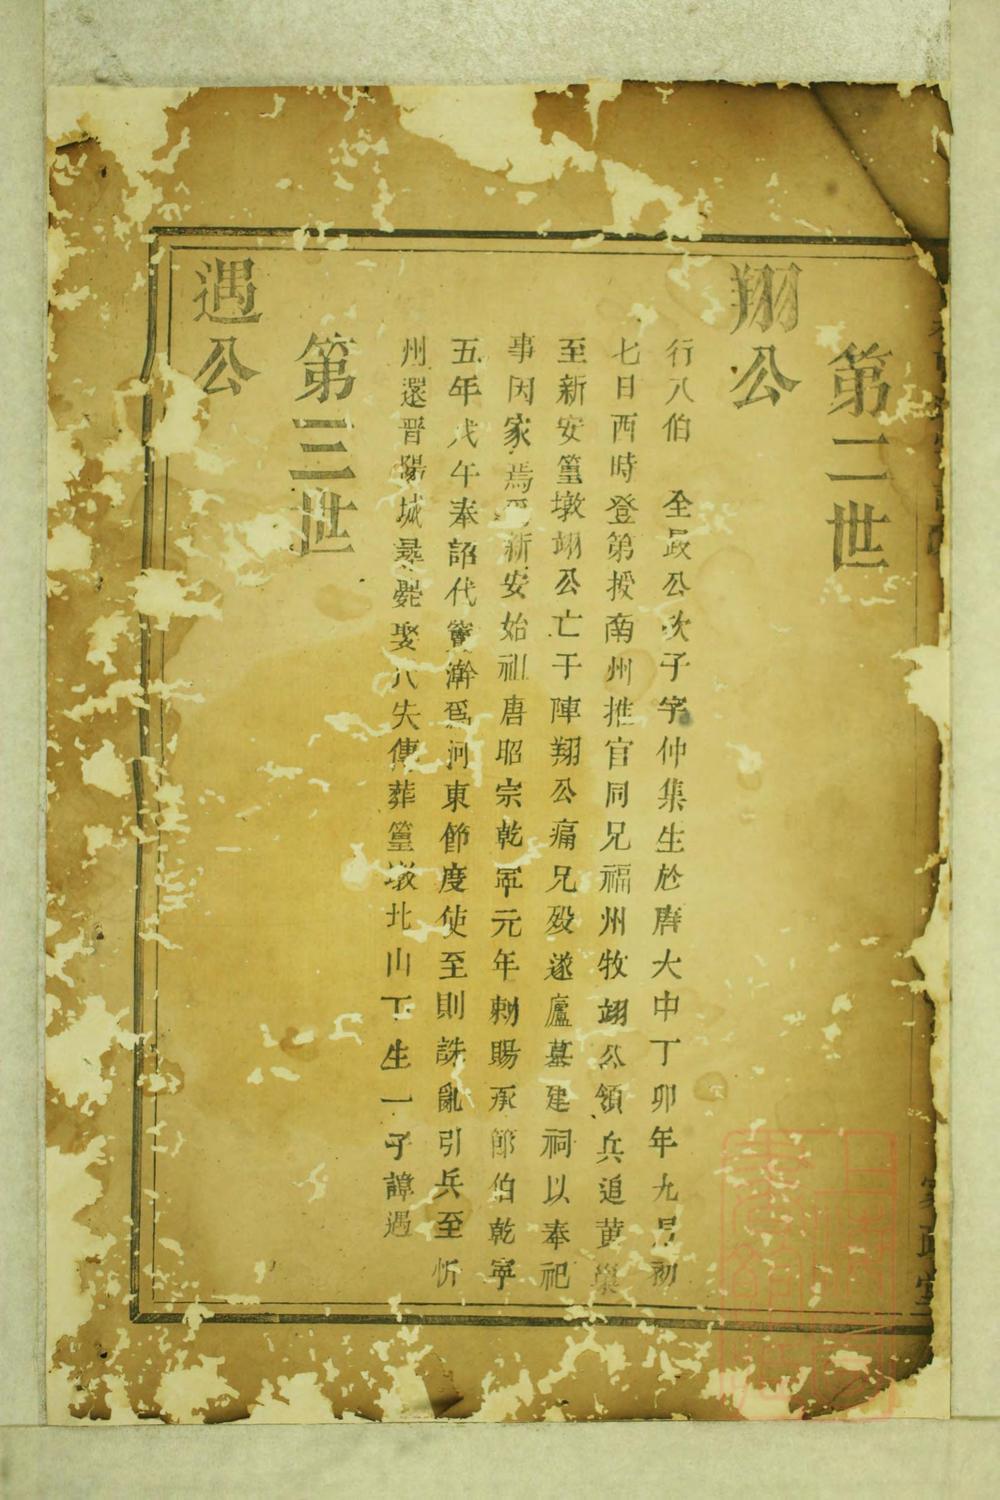 第二世
翔公
行八伯 全政公次子字仲集生於唐大中丁卯年九月初
七日酉時登第授南州推官同兄福州牧翊公領兵追黄巢
至新安篁墩翊公亡于陣翔公痛兄殁遂廬墓建祠以奉祀
事因家焉爲新安始祖唐昭宗乾寧元年勅賜承節伯乾寧
五年戊午奉詔代竇澣爲河東節度使至則誅亂引兵至忻
州還晋陽城尋斃娶八失傳葬篁墩北山下生一子諱遇
第三世
遇公